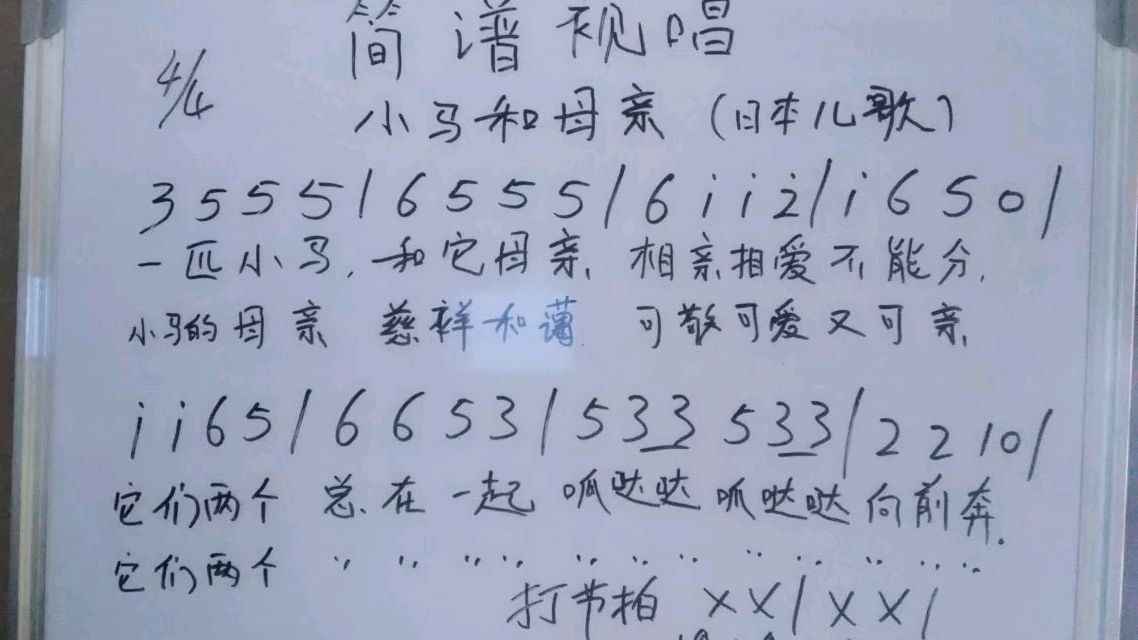 简谱视唱
4/4
小马和母亲(日本儿歌)
3 5 5 5 | 6 5 5 5 | 6 i i 2̇ | i 6 5 0 |
一匹小马,和它母亲、相亲相爱不能分.
小马的母亲 慈祥和蔼. 可敬可爱又可亲.
i i 6 5 | 6 6 5 3 | 5 3̲ 3̲ 5 3̲ 3̲ | 2 2 1 0 |
它们两个 总在一起 呱哒哒 呱哒哒 向前奔.
它们两个 〃 〃 〃 〃 〃 〃 〃 〃 〃 〃 〃 〃 〃
打节拍 X X | X X |